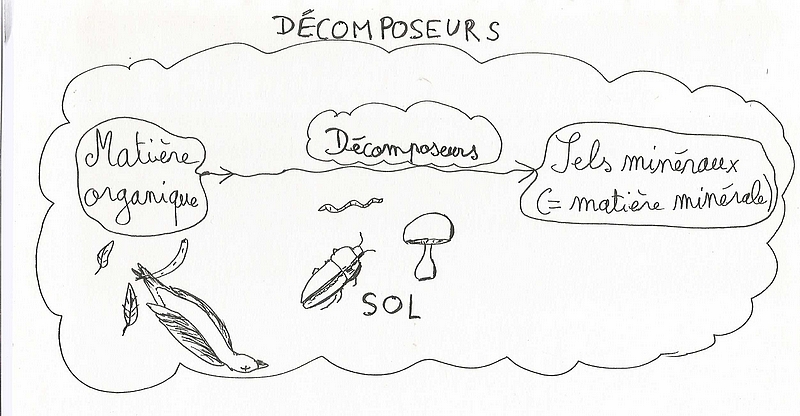 DÉCOMPOSEURS
Matière
organique
Décomposeurs
Sels minéraux
(= matière minérale)
SOL